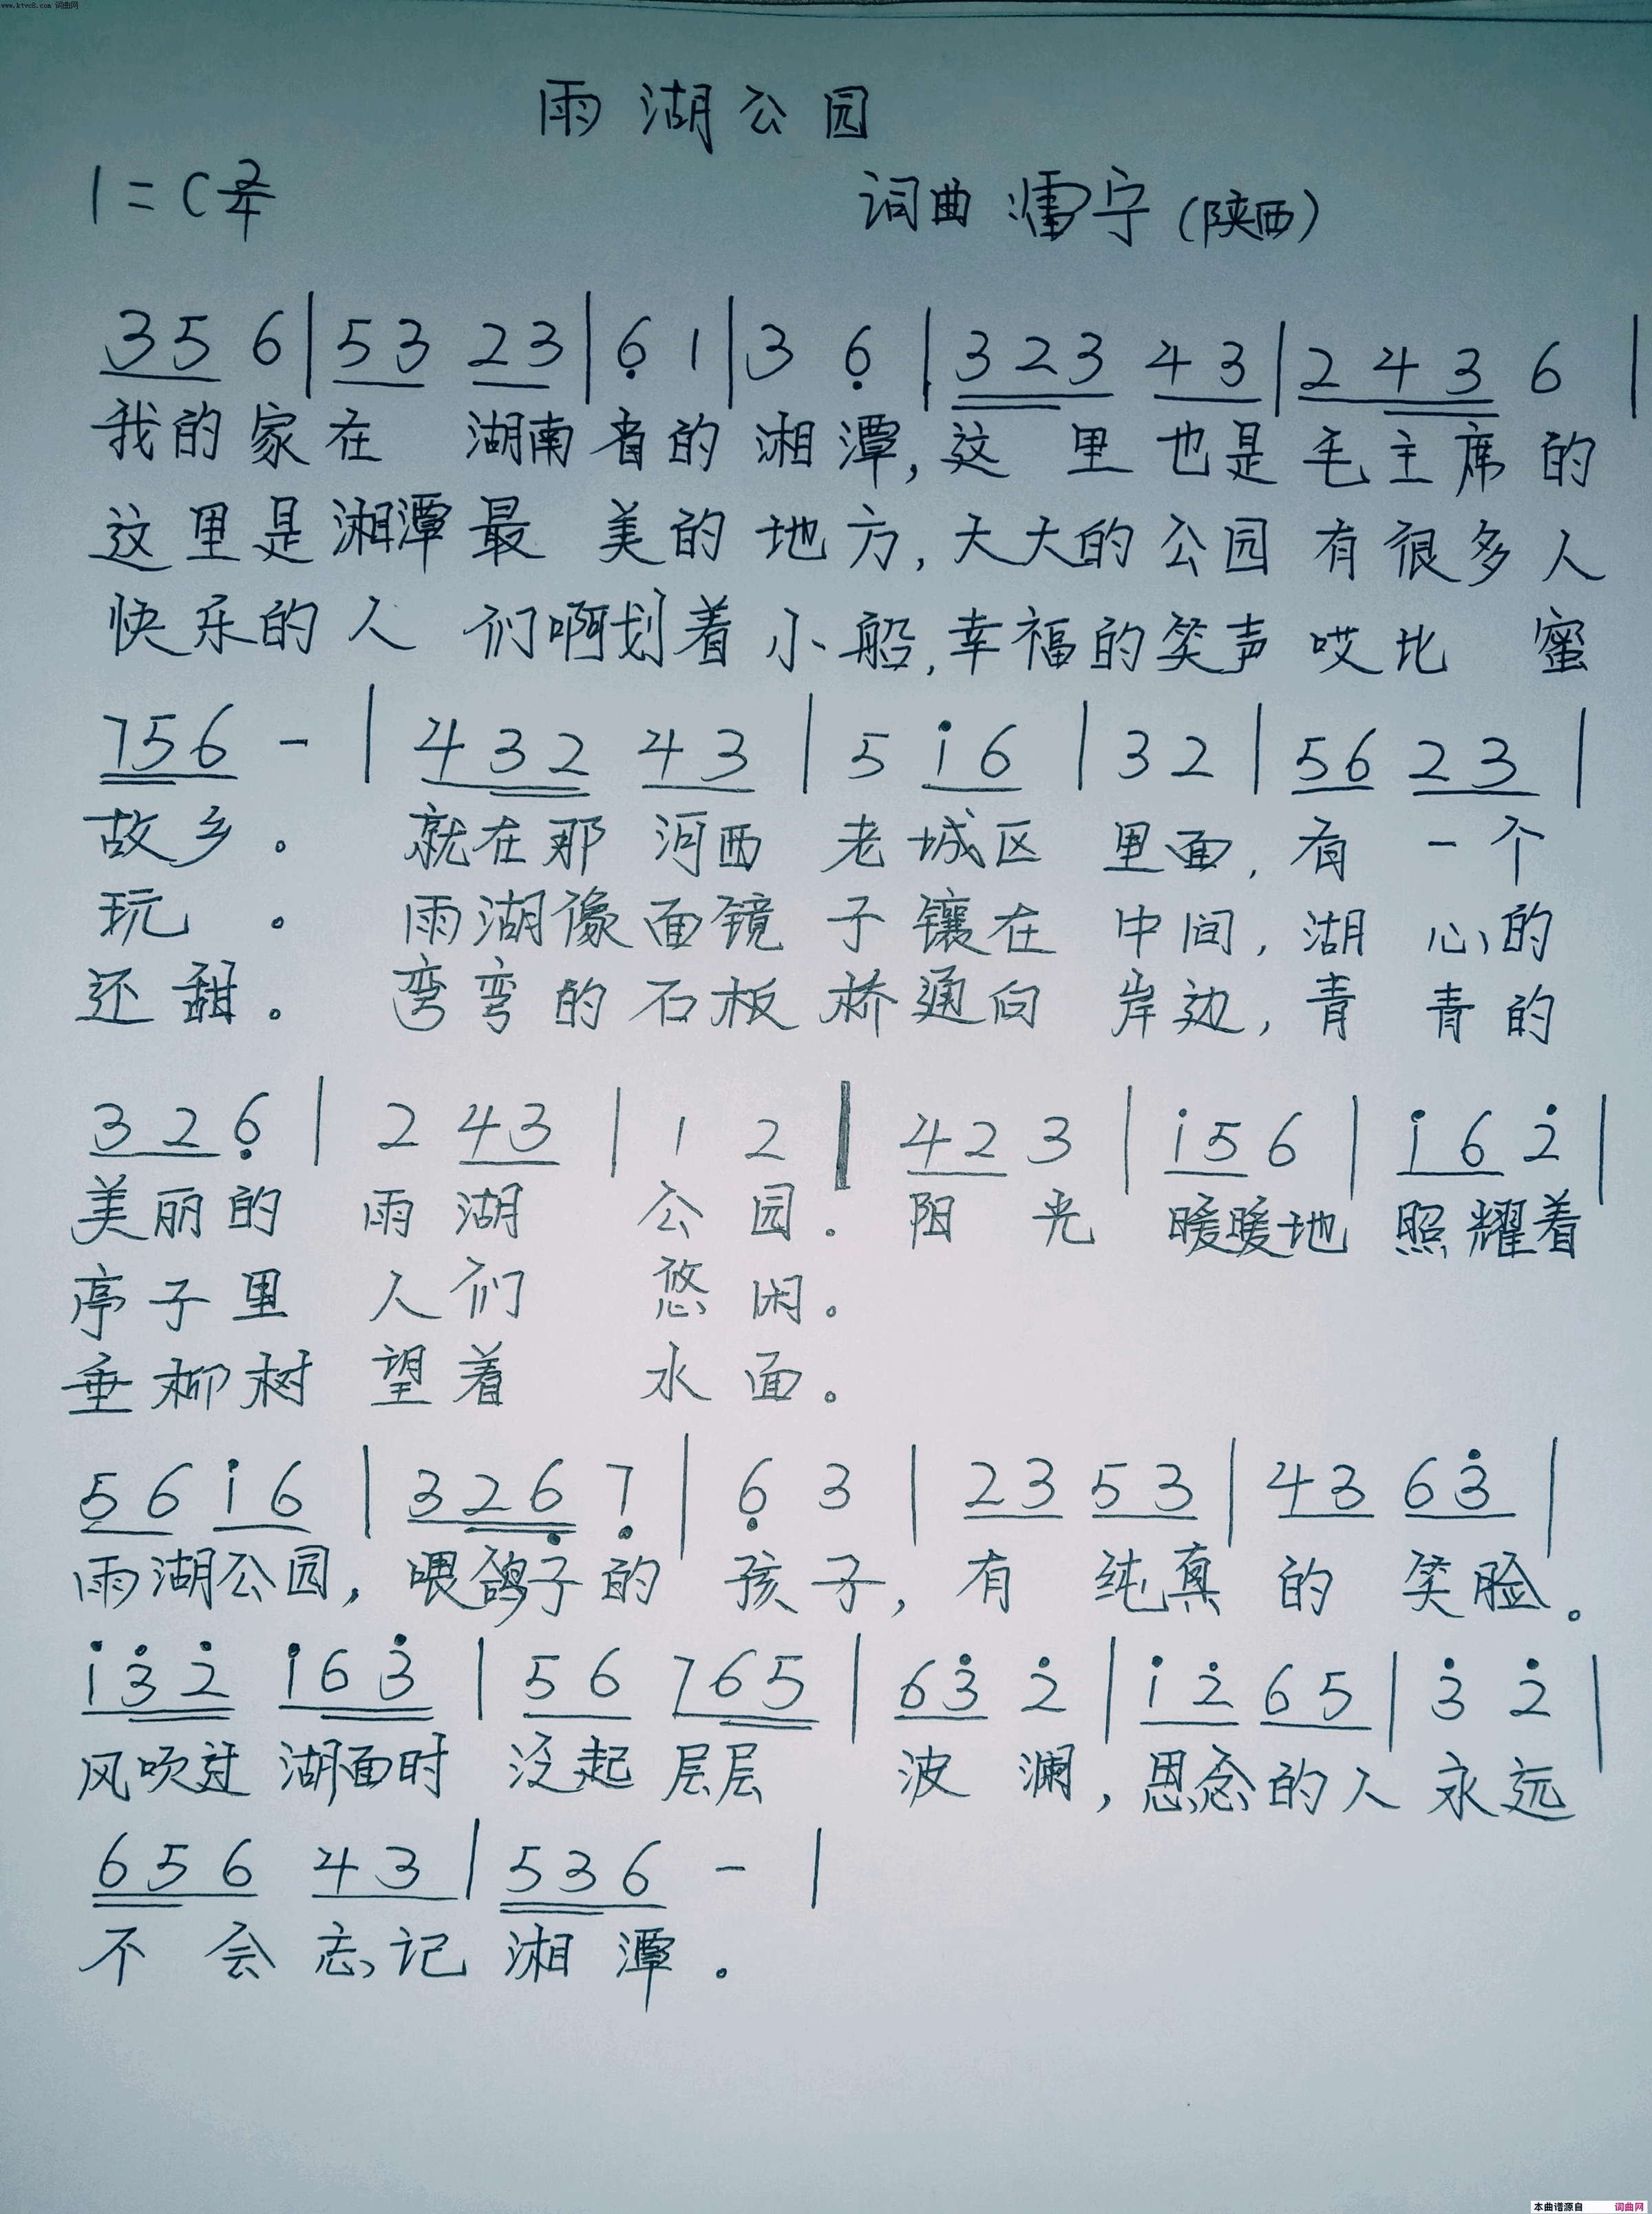 www.ktvc8.com 词曲网
雨湖公园
1=C 2/4
词曲 濡宁(陕西)
3 5 6 | 5 3 2 3 | 6̣ 1 | 3 6̣ | 3 2 3 4 3 | 2 4 3 6 |
我的家在 湖南省的湘潭,这里也是毛主席的
这里是湘潭最美的地方,大大的公园有很多人
快乐的人们啊划着小船,幸福的笑声哎比蜜
7 5 6 - | 4 3 2 4 3 | 5 i 6 | 3 2 | 5 6 2 3 |
故乡。 就在那河西老城区里面,有一个
玩。 雨湖像面镜子镶在中间,湖心的
还甜。 弯弯的石板桥通向岸边,青青的
3 2 6̣ | 2 4 3 | 1 2 ‖ 4 2 3 | i 5 6 | i 6 2̇ |
美丽的雨湖公园.阳光暖暖地照耀着
亭子里人们悠闲。
垂柳树望着水面。
5 6 i 6 | 3 2 6̣ 7̣ | 6̣ 3 | 2 3 5 3 | 4 3 6 3̇ |
雨湖公园,喂鸽子的孩子,有纯真的笑脸。
i 3̇ 2̇ i 6 3̇ | 5 6 7 6 5 | 6 3̇ 2̇ | i 2̇ 6 5 | 3̇ 2̇ |
风吹过湖面时泛起层层波澜,思念的人永远
6 5 6 4 3 | 5 3 6 - |
不会忘记湘潭。
本曲谱源自 词曲网